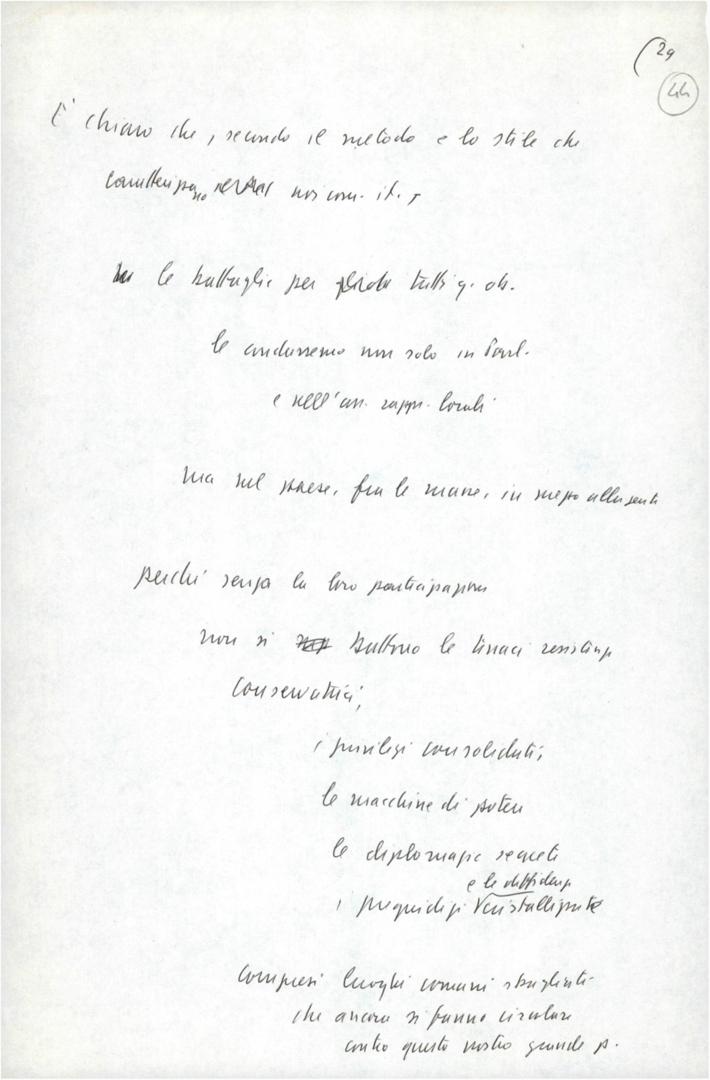 (29
44
È chiaro che, secondo il metodo e lo stile che
caratterizzano noi com. it.,
le battaglie per tutti q. ob.
le condurremo non solo in Parl.
e nell'ass. rappr. locali
ma nel paese, fra le masse, in mezzo alla gente
perché senza la loro partecipazione
non si battono le tenaci resistenze
conservatrici,
i privilegi consolidati,
le macchine di potere
le diplomazie segrete
e le diffidenze
i pregiudizi cristallizzati
compresi luoghi comuni sbagliati
che ancora si fanno circolare
contro questo nostro grande p.